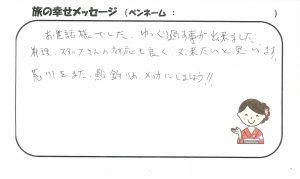 旅の幸せメッセージ (ペンネーム: )
お世話様でした。ゆっくり過す事が出来ました。
料理、スタッフさんの対応も良く、又来たいと思います。
荒川をまた、鮎釣りの、メッカにしましょう!!